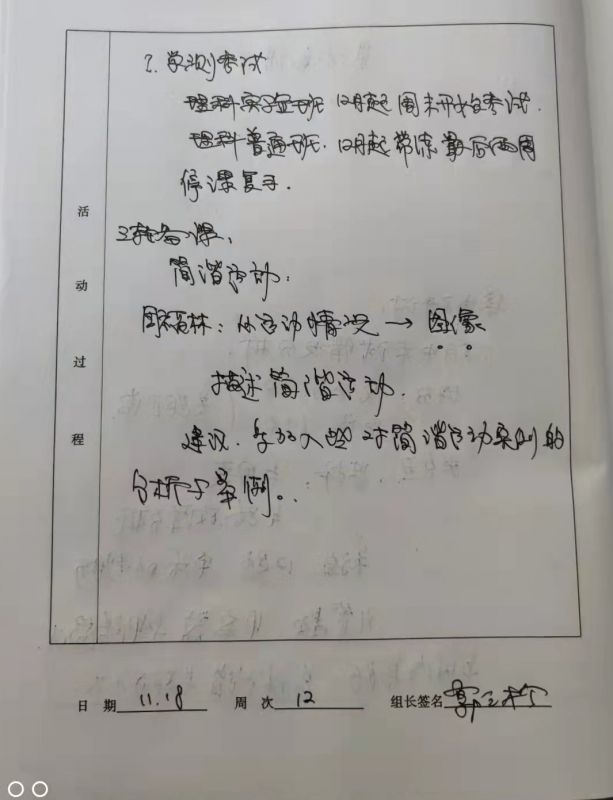 2. 学测考试
理科实验班 12月起 周末开始考试.
理科普通班. 12月起 常态 最后两周
停课复习.
3. 准备课:
简谐运动:
周福林: 从运动情况 → 图像
描述简谐运动.
建议. 多加入些 对简谐运动实例的
分析与举例。
活动过程
日 期 11.18 周 次 12 组长签名